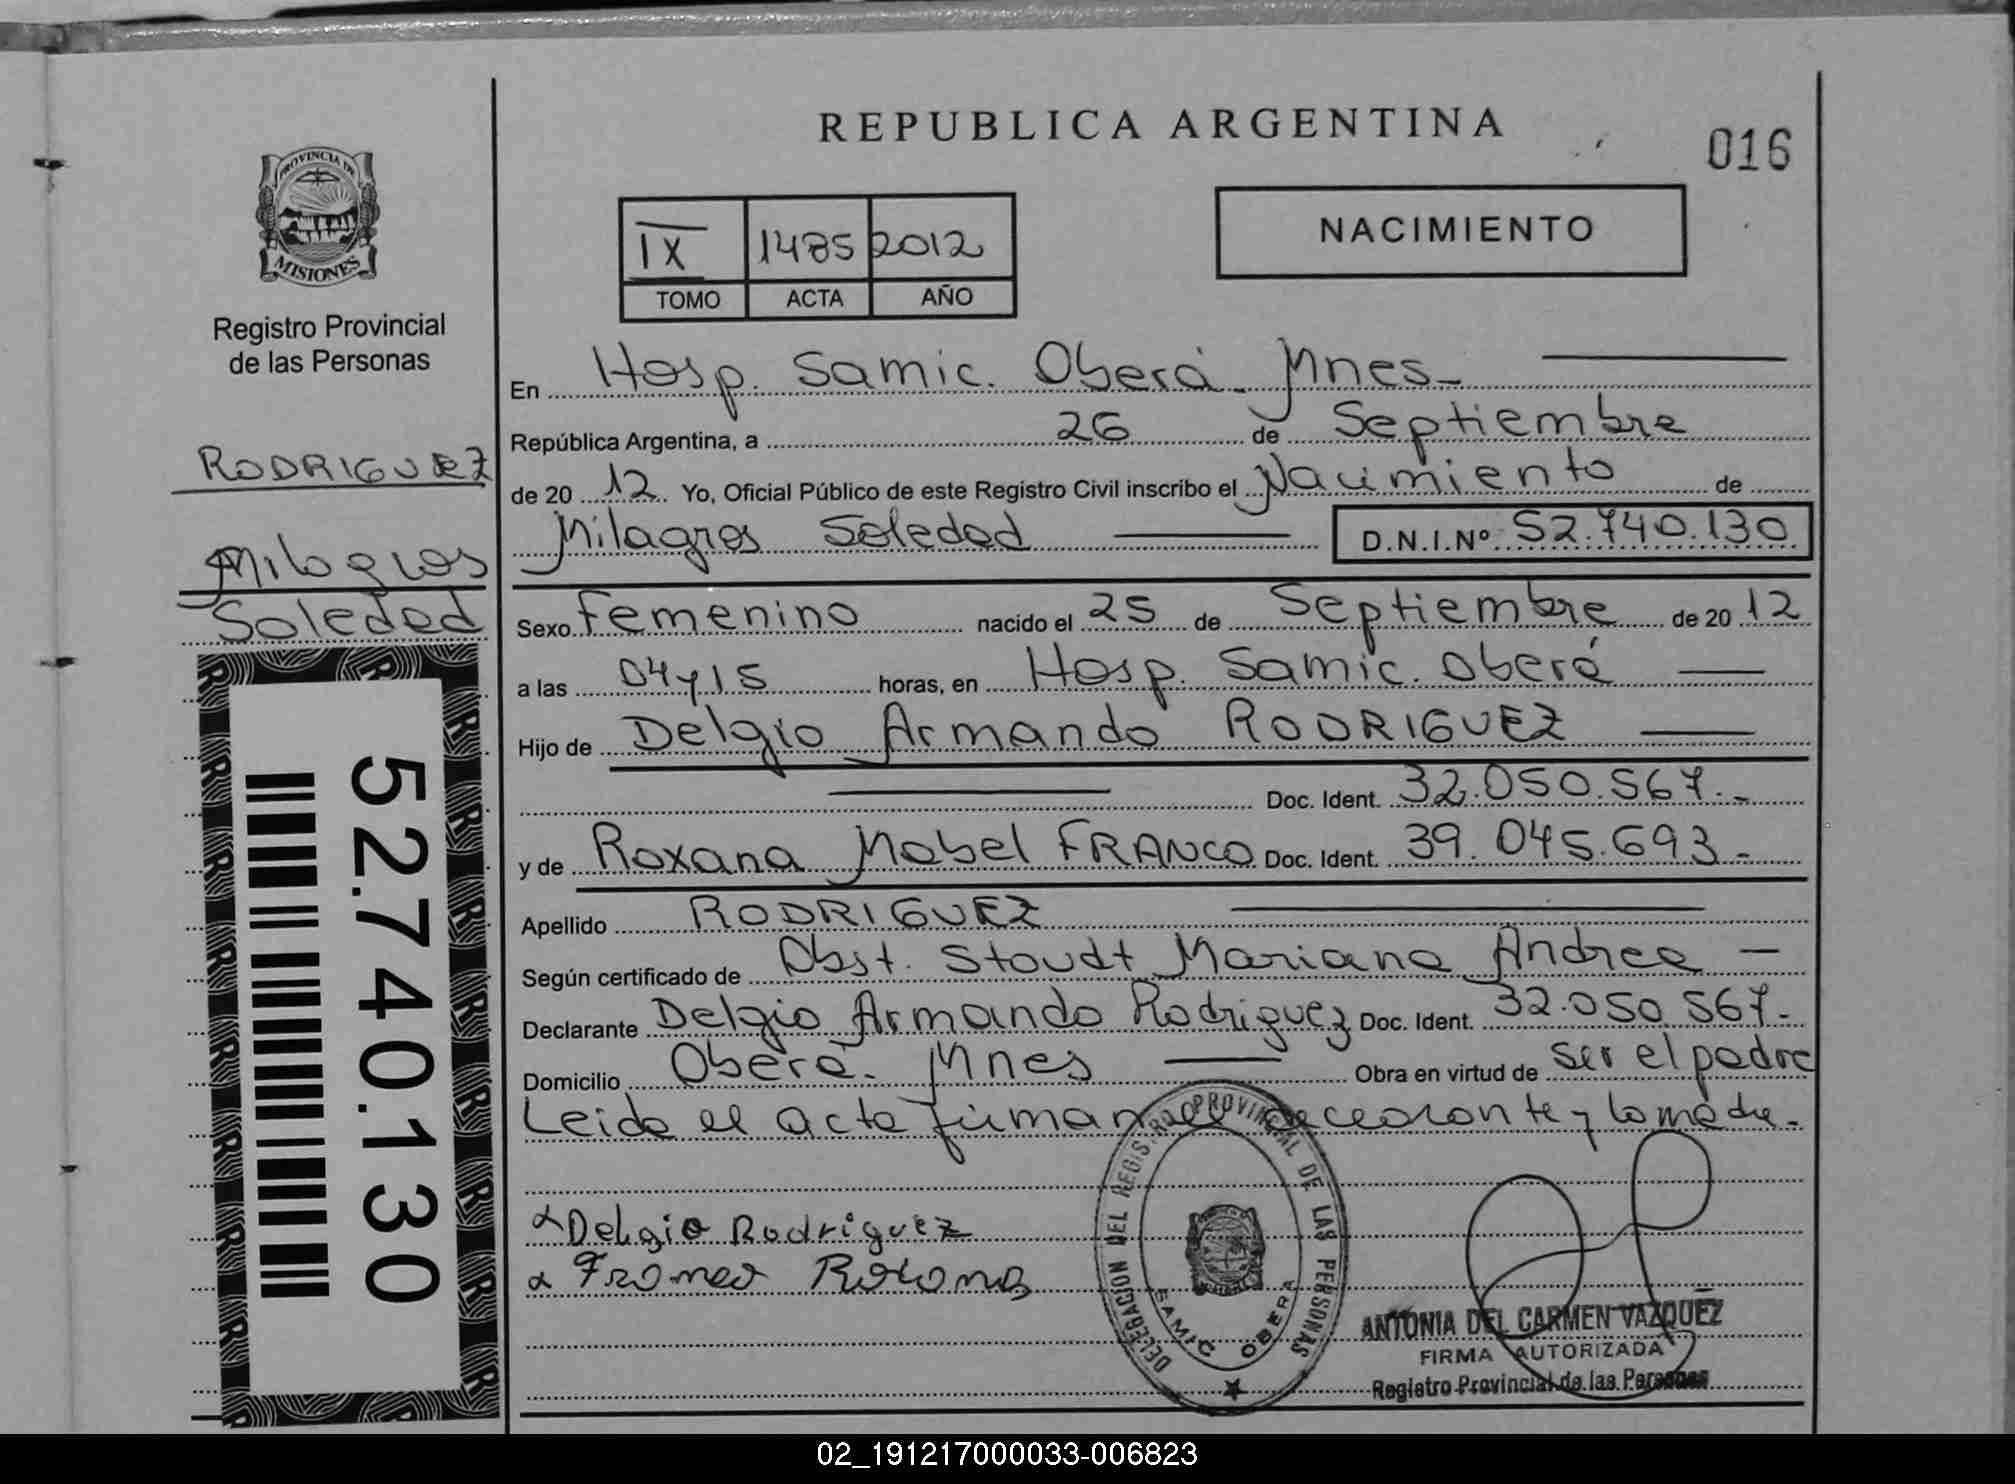 REPUBLICA ARGENTINA
016
PROVINCIA DE
MISIONES
Registro Provincial
de las Personas
RODRIGUEZ
Milagros
Soledad
52.740.130
IX 1485 2012
TOMO ACTA AÑO
NACIMIENTO
En Hosp. Samic. Oberá Mnes
República Argentina, a 26 de Septiembre
de 20 12. Yo, Oficial Público de este Registro Civil inscribo el Nacimiento de
Milagros Soledad D.N.I.Nº 52.740.130
Sexo Femenino nacido el 25 de Septiembre de 20 12
a las 04 y 15 horas, en Hosp. Samic. Oberá
Hijo de Delgio Armando RODRIGUEZ
Doc. Ident. 32.050.567.-
y de Roxana Mabel FRANCO Doc. Ident. 39.045.693.-
Apellido RODRIGUEZ
Según certificado de Obst. Stoudt Mariana Andrea -
Declarante Delgio Armando Rodriguez Doc. Ident. 32.050.567.-
Domicilio Oberá. Mnes Obra en virtud de ser el padre
Leida el acta firman el declarante y la madre.-
Delgio Rodriguez
Franco
DELEGACION DEL REGISTRO PROVINCIAL DE LAS PERSONAS
SAMIC OBERA
ANTONIA DEL CARMEN VAZQUEZ
FIRMA AUTORIZADA
Registro Provincial de las Personas
02_191217000033-006823